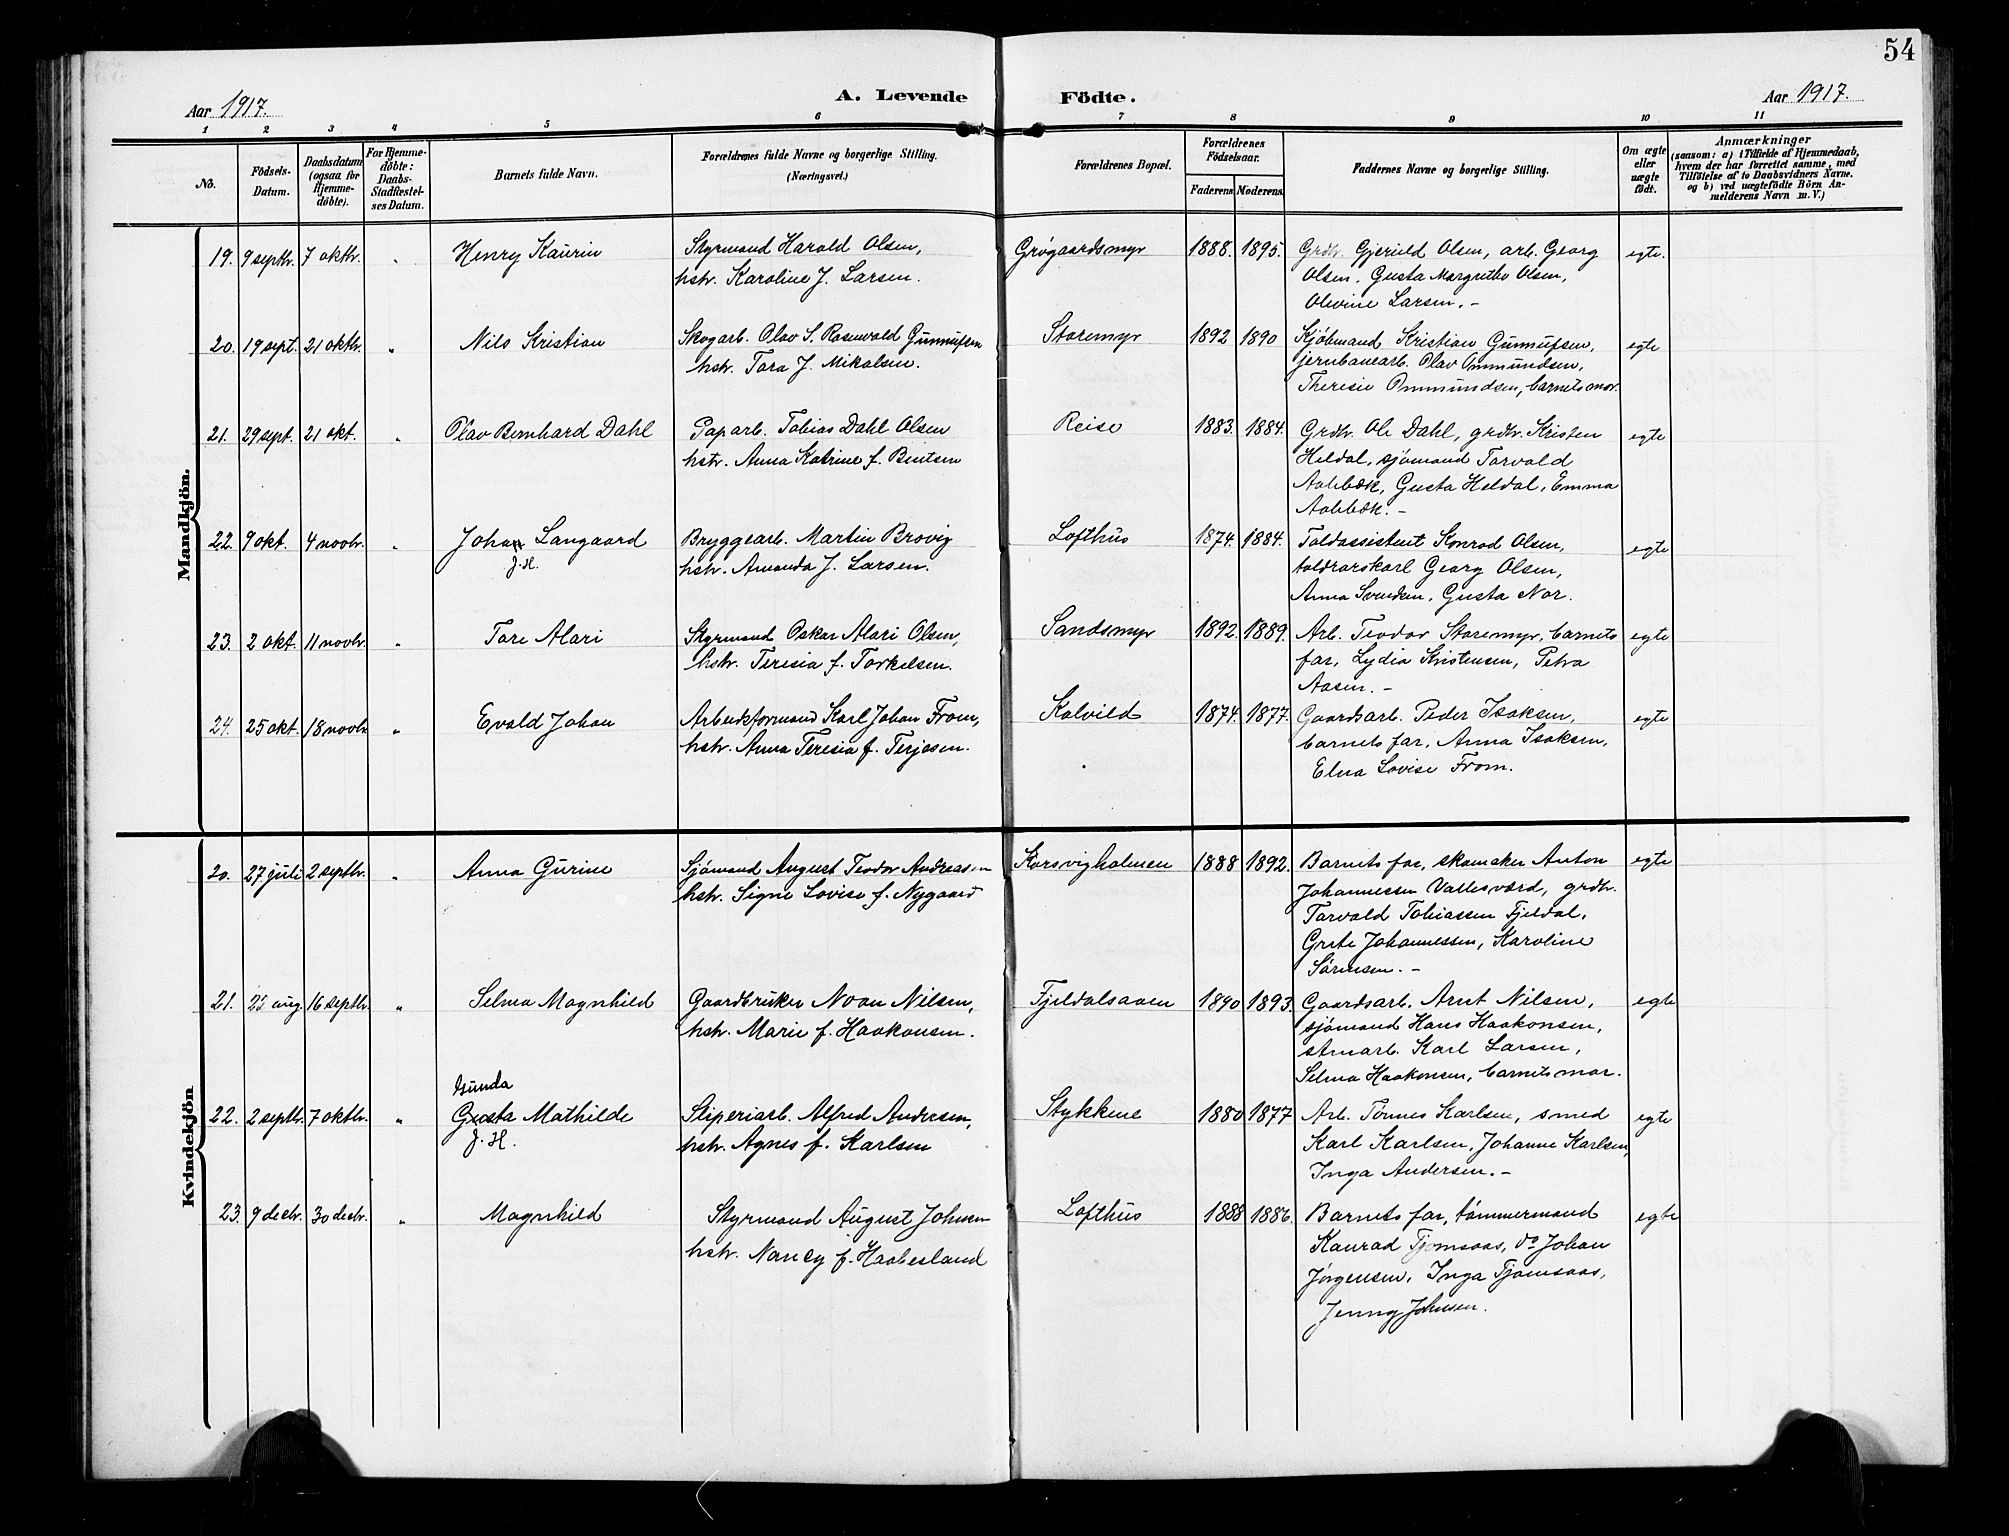 54
Aar 1917.
A. Levende
Födte.
Aar 1917.
1 2 3 4 5 6 7 8 9 10 11
No.
Födsels-
Datum.
Daabsdatum
(ogsaa for
Hjemme-
döbte).
For Hjemme-
döbte:
Daabs-
Stadfæstel-
ses Datum.
Barnets fulde Navn.
Forældrenes fulde Navne og borgerlige Stilling.
(Næringsvei.)
Forældrenes Bopæl.
Forældrenes
Födselsaar.
Faderens. Moderens.
Faddernes Navne og borgerlige Stilling.
Om ægte
eller
uægte
födt.
Anmærkninger
(saasom: a) i Tilfælde af Hjemmedaab,
hvem der har forrettet samme, med
Tilföielse af to Daabsvidners Navne.
og b) ved uægtefödte Börn An-
melderens Navn m. V.)
Mandkjön.
19. 9 septbr. 7 oktbr. " Henry Kaurin Styrmand Harald Olsen, Grøgaardsmyr 1888. 1895. Grdbr. Gjeruld Olsen, arb. Georg egte.
hstr. Karoline f. Larsen. Olsen, Gusta Margrethe Olsen,
Olevine Larsen. -
20. 19 sept. 21 oktbr. " Nils Kristian Skogarb. Olav S. Rosenvald Gunnufsen Storemyr 1892 1890 Kjöbmand Kristian Gunnufsen, egte
hstr. Tora f. Mikalsen. jernbanearb. Olav Ommundsen,
Theresie Ommundsen, barnets mor.
21. 29 sept. 21 okt. " Olav Bernhard Dahl Paparb. Tobias Dahl Olsen Reise 1883. 1884. Grdbr. Ole Dahl, grdbr. Kristen egte
hstr. Anna Katrine f. Bentsen Heldal, sjömand Torvald
Aabbæk, Gusta Heldal, Emma
Aabbæk. -
22. 9 okt. 4 novbr. " Johan Langaard Bryggearb. Martin Brovig Lofthus 1874. 1884. Toldassistent Konrad Olsen, egte
J.H. hstr. Amanda f. Larsen. toldrorskarl Georg Olsen,
Anna Svendsen, Gusta Nor.
23. 2 okt. 11 novbr. " Tore Alari Styrmand Oskar Alari Olsen, Sandsmyr 1892. 1889. Arb. Teodor Storemyr, barnets egte
hstr. Teresia f. Torkelsen. far, Lydia Kristensen, Petra
Aasen. -
24. 25 okt. 18 novbr " Evald Johan Arbeidsformand Karl Johan From, Kalvild 1874. 1877. Gaardsarb. Peder Isaksen, egte
hstr. Anna Teresia f. Terjesen. barnets far, Anna Isaksen,
Elna Lovise From.
Kvindekjön
20. 27 juli 2 septbr. " Anna Gurine Sjömand August Teodor Andreasen Korsvigholmen 1888 1892. Barnets far, skomaker Anton egte
hstr. Signe Lovise f. Nygaard Johannessen Vallesværd, grdbr.
Torvald Tobiassen Fjeldal,
Grete Johannessen, Karoline
Sörensen. -
21. 25 aug. 16 septbr. " Selma Magnhild Gaardbruker Noan Nilsen, Fjeldalsaaen 1890 1893. Gaardsarb. Arnt Nilsen, egte
hstr. Marie f. Haakonsen. sjömand Hans Haakonsen,
Karl Larsen,
Selma Haakonsen, barnets mor.
Gunda
22. 2 septbr. 7 oktbr. " Gusta Mathilde Sliperiarb. Alfred Andersen, Stykkene 1880 1877 Arb. Tönnes Karlsen, smed egte
J.H. hstr. Agnes f. Karlsen Karl Karlsen, Johanne Karlsen,
Inga Andersen. -
23. 9 decbr. 30 decbr. " Magnhild Styrmand August Johnsen Lofthus 1888 1886. Barnets far, tömmermand egte
hstr. Nancy f. Haabesland Konrad Tjomsaas, do Johan
Jörgensen, Inga Tjomsaas,
Jenny Johnsen.